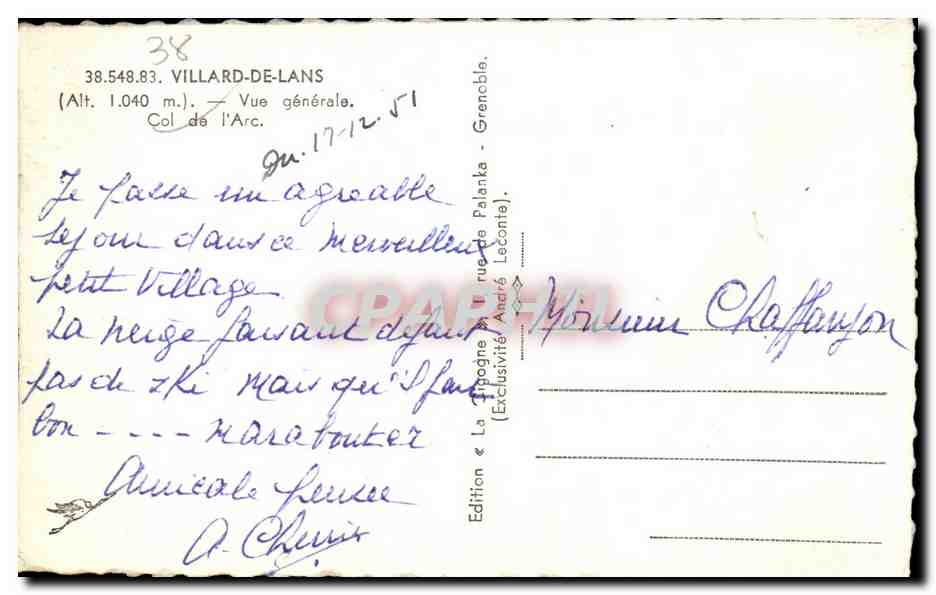 38
38.548.83. VILLARD-DE-LANS
(Alt. 1.040 m.). — Vue générale.
Col de l'Arc.
Du. 17-12.51
Je passe un agreable
sejour dans ce merveilleux
petit Village
La neige faisant defaut
pas de ski mais qu'il fait
bon - - - - maraboutez
Amicale pensée
A. Cherrier
Edition « La Cigogne » 1 rue de Palanka - Grenoble.
(Exclusivité André Leconte).
CPAPHIL
Monsieur Chaffanjon